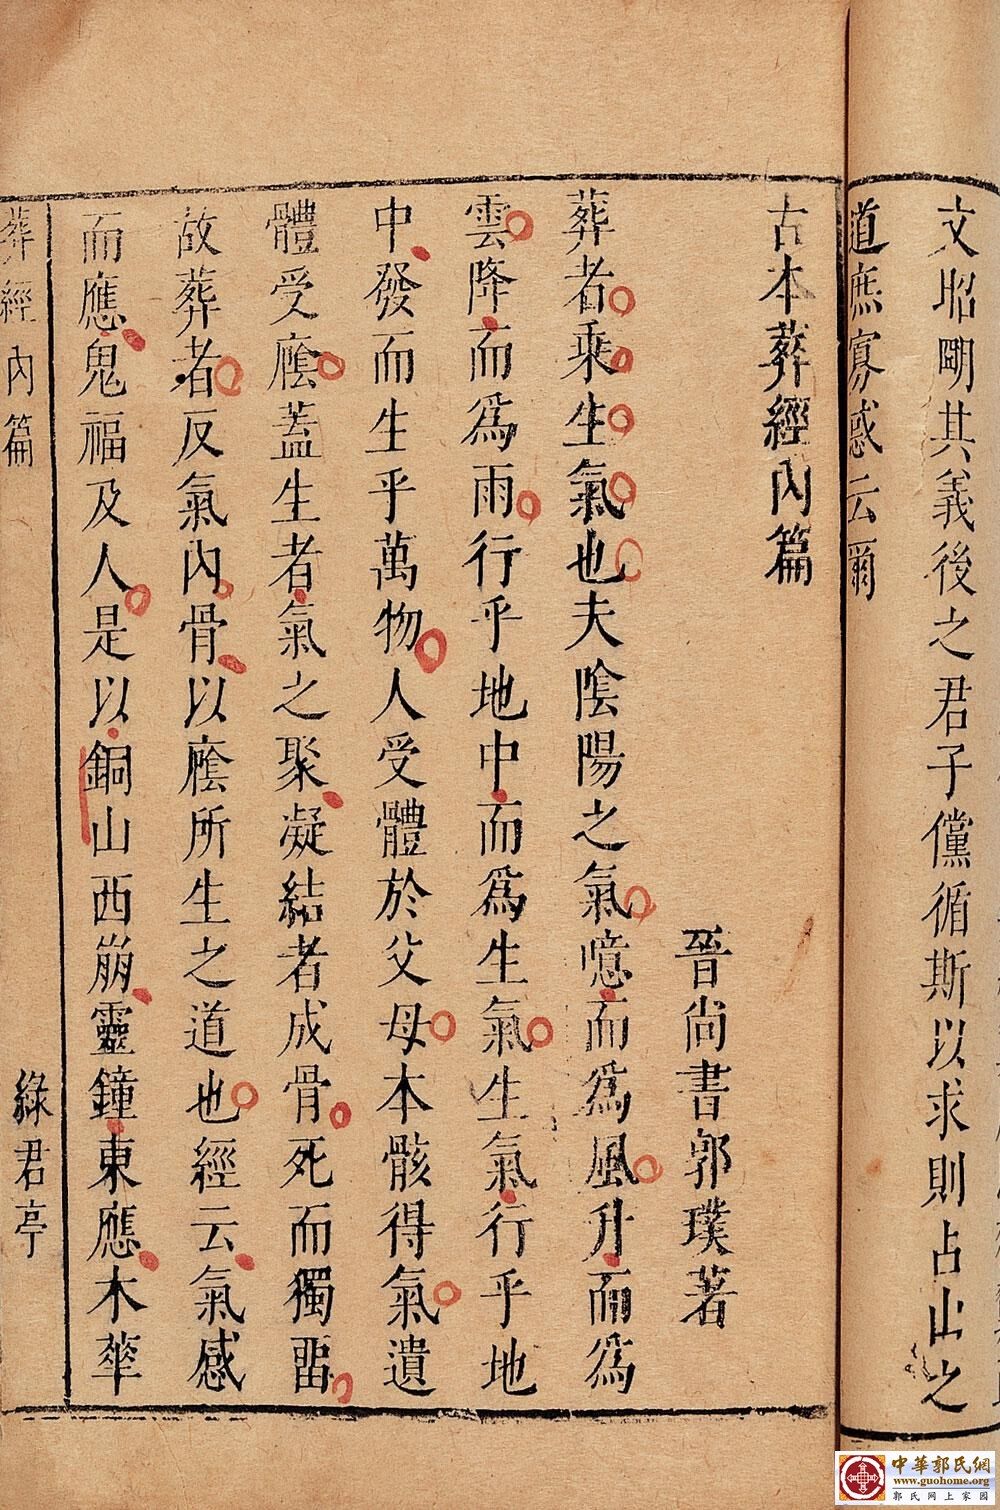 文昭明其義後之君子儻循斯以求則占山之
道庶寡惑云爾
古本葬經內篇
晉尚書郭璞著
葬者乘生氣也夫陰陽之氣噫而為風升而為
雲降而為雨行乎地中而為生氣生氣行乎地
中發而生乎萬物人受體於父母本骸得氣遺
體受廕蓋生者氣之聚凝結者成骨死而獨畱
故葬者反氣內骨以廕所生之道也經云氣感
而應鬼福及人是以銅山西崩靈鐘東應木華
葬經內篇
綠君亭
中華郭氏網
www.guohome.org
郭氏网上家园